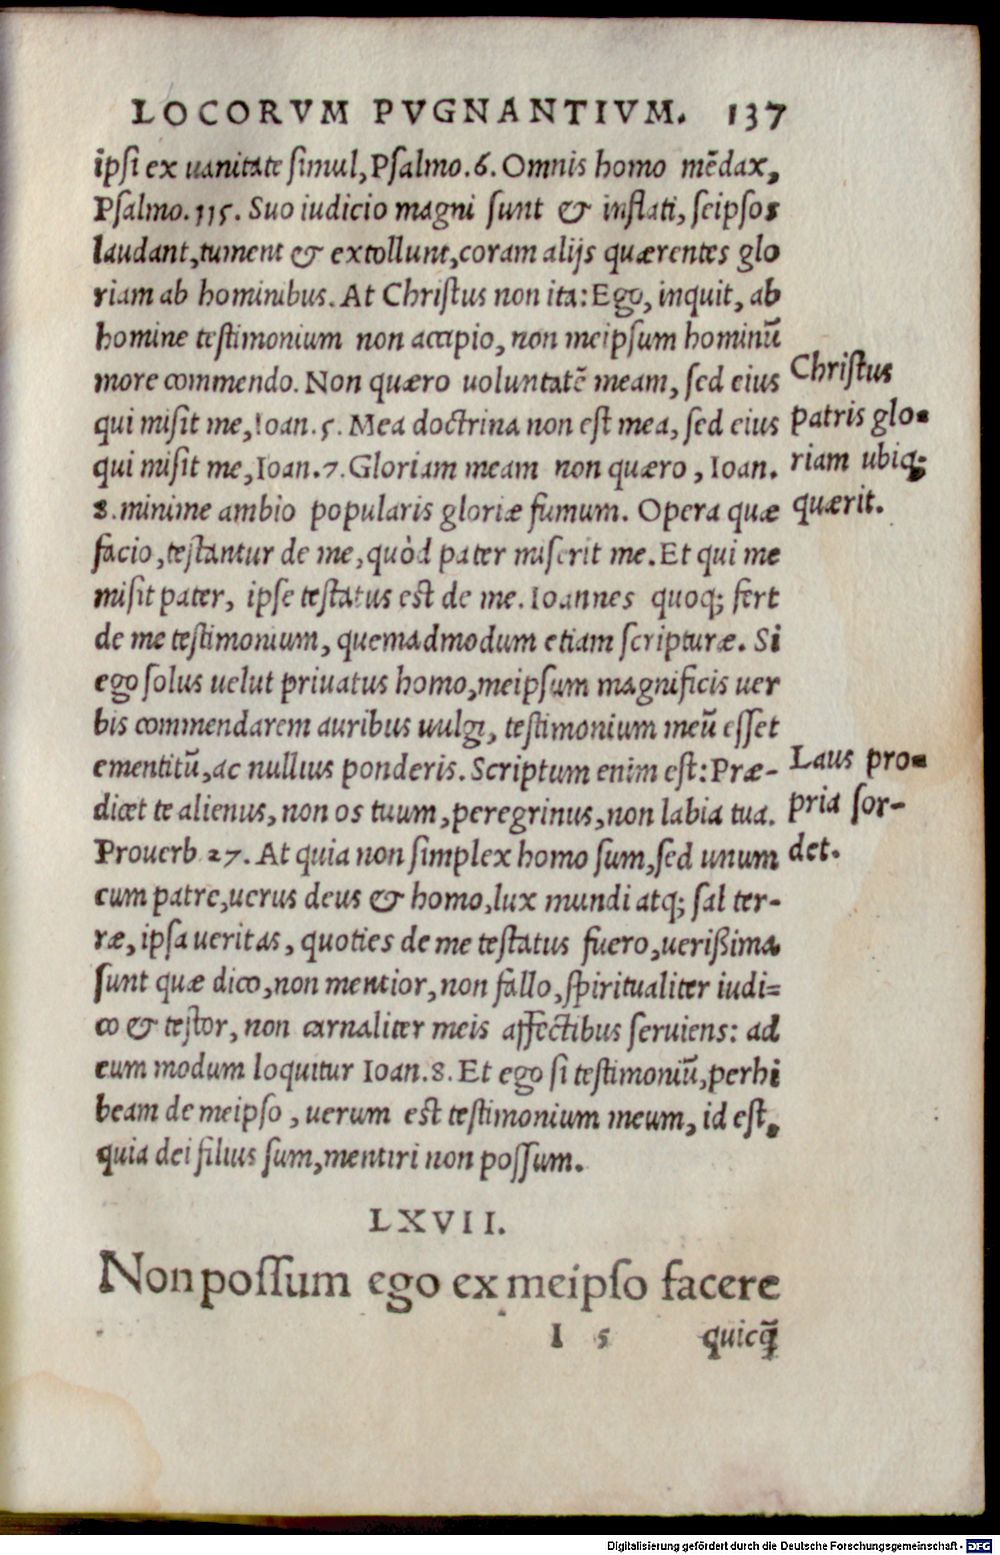 LOCORVM PVGNANTIVM. 137
ipsi ex uanitate simul, Psalmo. 6. Omnis homo mēdax,
Psalmo. 115. Suo iudicio magni sunt & inflati, seipsos
laudant, tument & extollunt, coram alijs quærentes glo
riam ab hominibus. At Christus non ita: Ego, inquit, ab
homine testimonium non accipio, non meipsum hominū
more commendo. Non quæro uoluntatē meam, sed eius
qui misit me, Ioan. 5. Mea doctrina non est mea, sed eius
qui misit me, Ioan. 7. Gloriam meam non quæro, Ioan.
8. minime ambio popularis gloriæ fumum. Opera quæ
facio, testantur de me, quòd pater miserit me. Et qui me
misit pater, ipse testatus est de me. Ioannes quoq; fert
de me testimonium, quemadmodum etiam scripturæ. Si
ego solus uelut priuatus homo, meipsum magnificis uer
bis commendarem auribus uulgi, testimonium meū esset
ementitū, ac nullius ponderis. Scriptum enim est: Præ-
dicet te alienus, non os tuum, peregrinus, non labia tua.
Prouerb 27. At quia non simplex homo sum, sed unum
cum patre, uerus deus & homo, lux mundi atq; sal ter-
ræ, ipsa ueritas, quoties de me testatus fuero, uerißima
sunt quæ dico, non mentior, non fallo, spiritualiter iudi=
co & testor, non carnaliter meis affectibus seruiens: ad
eum modum loquitur Ioan. 8. Et ego si testimoniū, perhi
beam de meipso, uerum est testimonium meum, id est,
quia dei filius sum, mentiri non possum.
Christus
patris glo-
riam ubiq;
quærit.
Laus pro-
pria sor-
det.
LXVII.
Non possum ego ex meipso facere
I 5 quicq̄
Digitalisierung gefördert durch die Deutsche Forschungsgemeinschaft - DFG